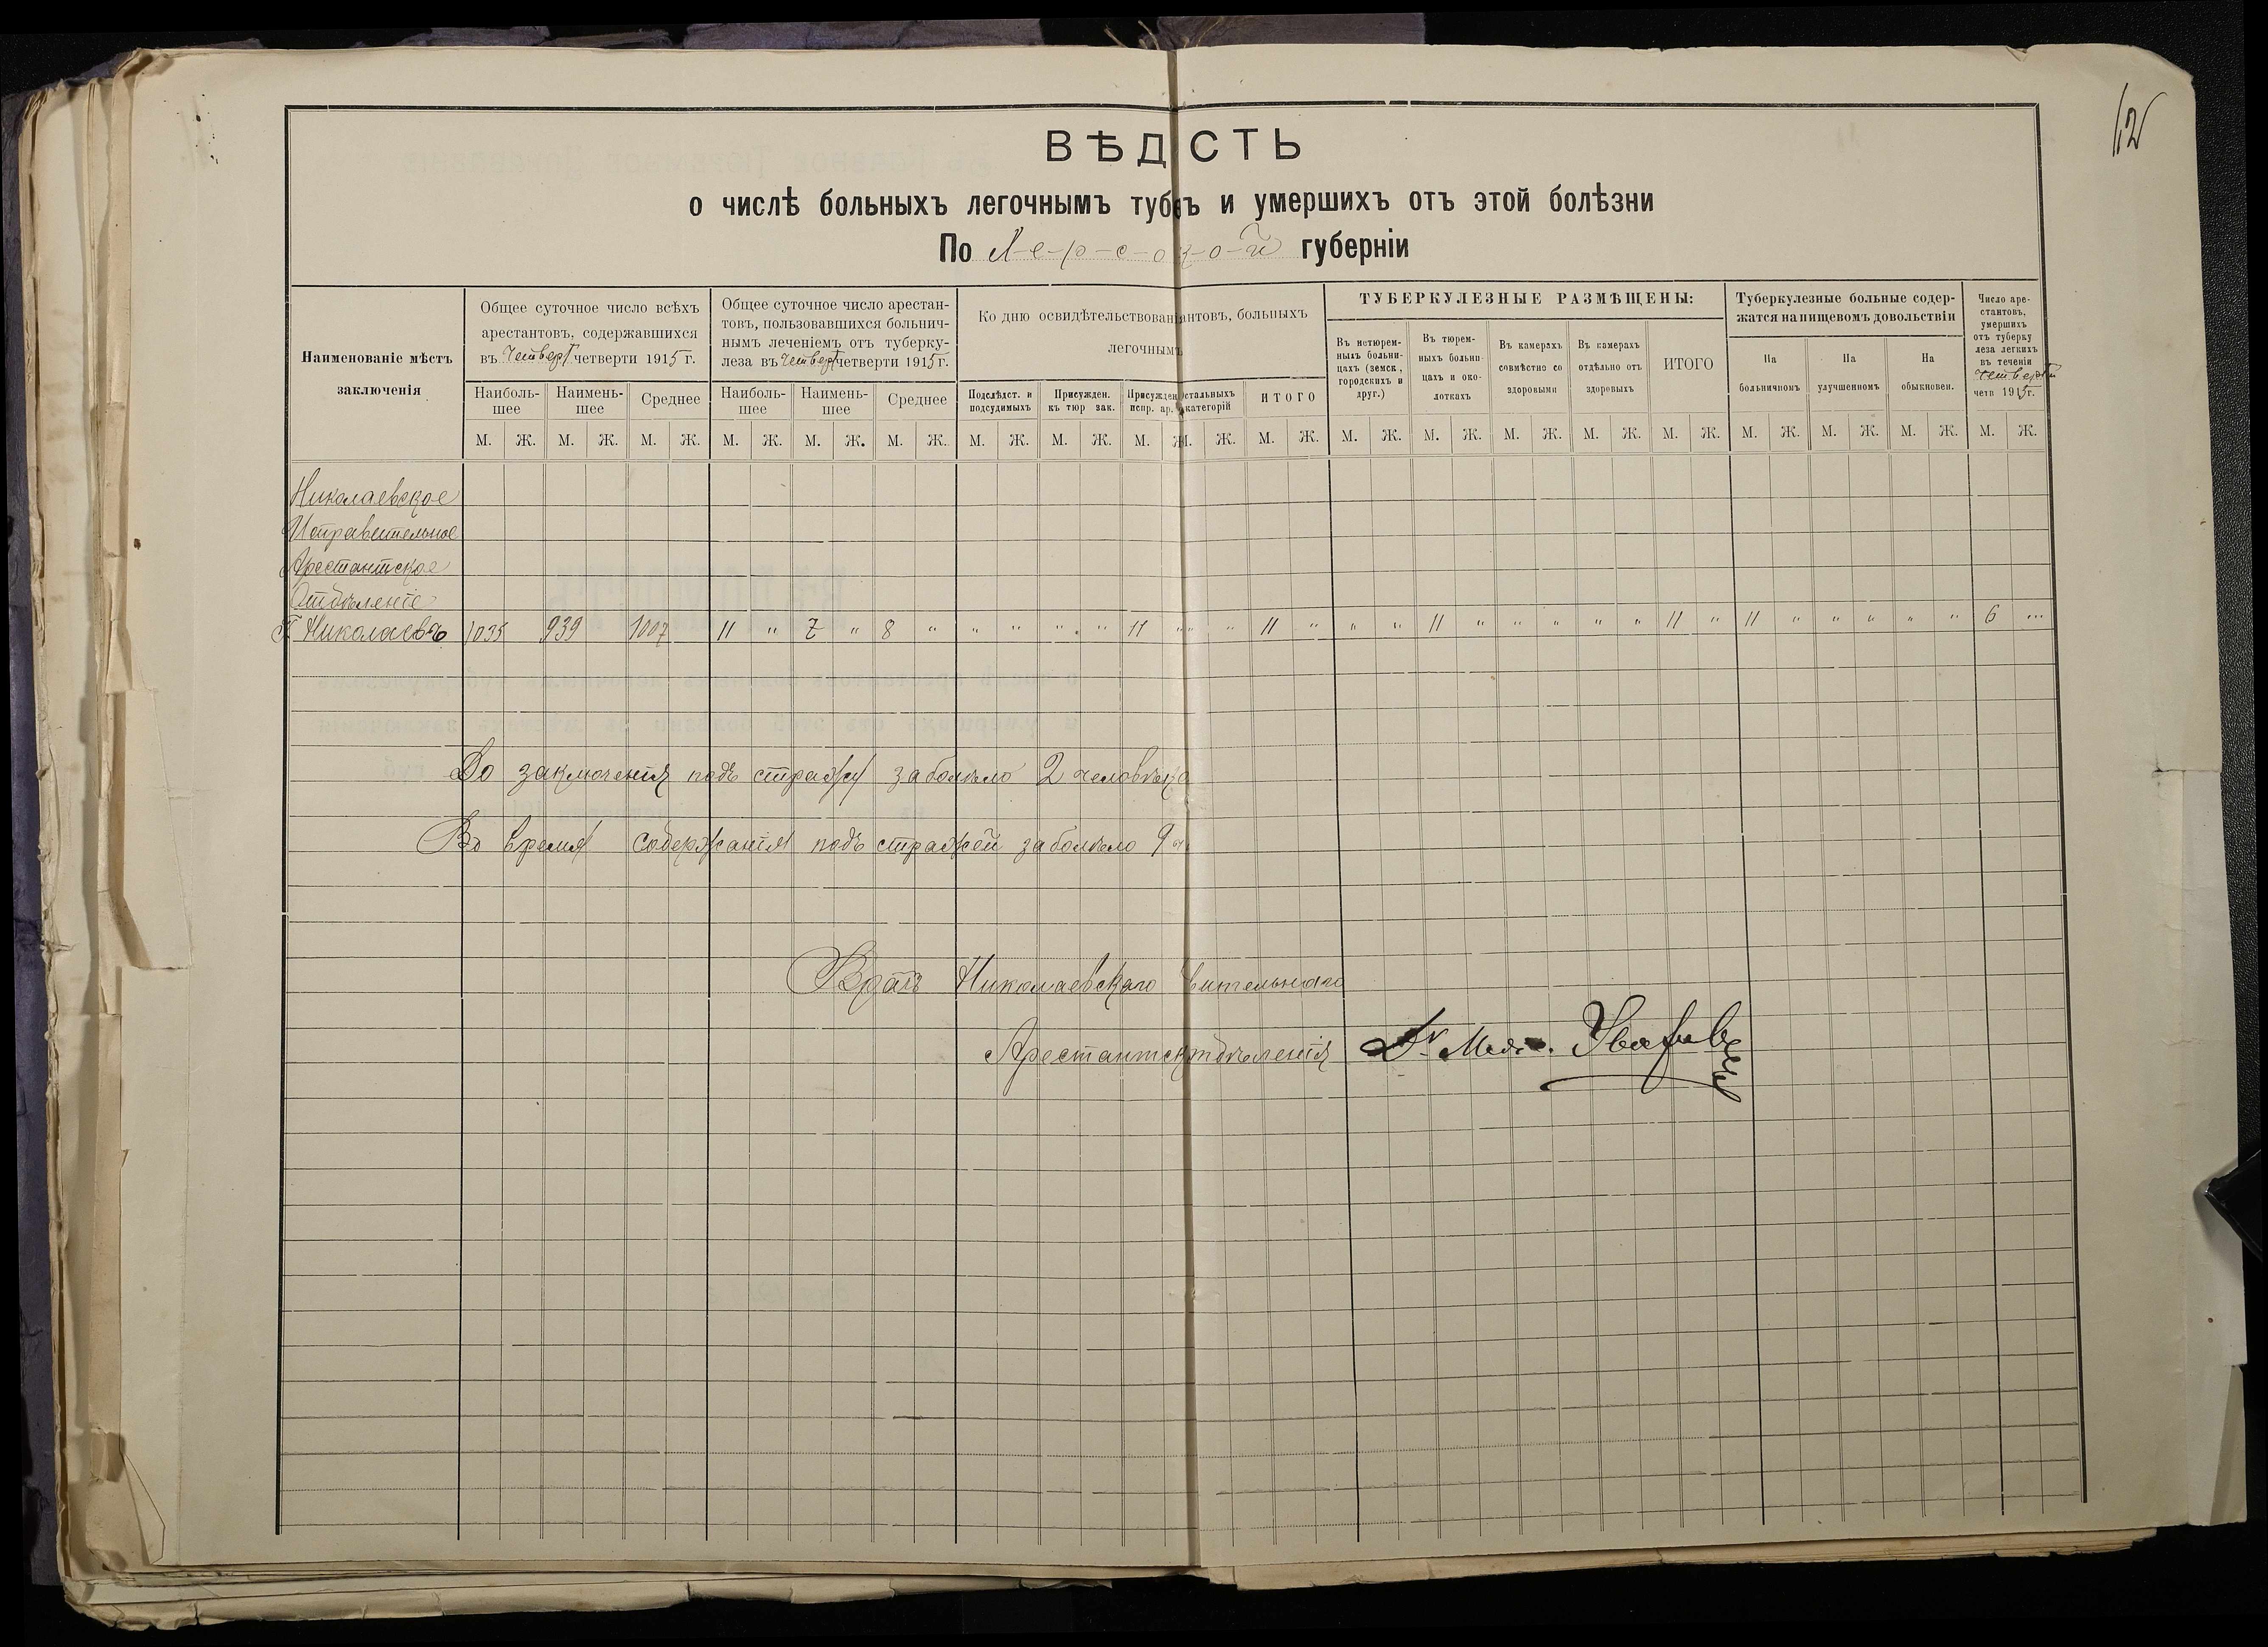 12
ВѢД СТЬ
о числѣ больныхъ легочнымъ туб ъ и умершихъ отъ этой болѣзни
По Херсонской губерніи
Наименованіе мѣстъ
заключенія
Общее суточное число всѣхъ
арестантовъ, содержавшихся
въ четверт четверти 1915 г.
Наиболь-
шее
Наимень-
шее
Среднее
Общее суточное число арестан-
товъ, пользовавшихся больнич-
нымъ леченіемъ отъ туберку-
леза въ четверт четверти 1915 г.
Наиболь-
шее
Наимень-
шее
Среднее
Ко дню освидѣтельствован антовъ, больныхъ
легочнымъ
Подслѣдст. и
подсудимыхъ
Присужден.
къ тюр зак.
Присужден
испр. ар.
стальныхъ
категорій
ИТОГО
ТУБЕРКУЛЕЗНЫЕ РАЗМѢЩЕНЫ:
Въ нетюрем-
ныхъ больни-
цахъ (земск,
городскихъ и
друг.)
Въ тюрем-
ныхъ больни-
цахъ и око-
лоткахъ
Въ камерахъ
совмѣстно со
здоровыми
Въ камерахъ
отдѣльно отъ
здоровыхъ
ИТОГО
Туберкулезные больные содер-
жатся на пищевомъ довольствіи
На
больничномъ
На
улучшенномъ
На
обыкновен.
Число аре-
стантовъ,
умершихъ
отъ туберку
леза легкихъ
въ теченіи
четверт
четв 1915 г.
М. Ж. М. Ж. М. Ж. М. Ж. М. Ж. М. Ж. М. Ж. М. Ж. М. Ж М. Ж. М. Ж. М. Ж. М. Ж. М. Ж. М. Ж. М. Ж. М. Ж. М. Ж. М. Ж. М. Ж.
Николаевское
Исправительное
Арестантское
Отдѣленіе
Г. Николаевъ 1035 939 1007 11 " 7 " 8 " " " " " 11 " " " 11 " " " 11 " " " " " 11 " 11 " " " " " 6 "
До заключенія подъ стражу заболѣло 2 человѣка
Во время содержанія подъ стражей заболѣло 9 ч
Врачъ Николаевскаго вительнаго
Арестантск тдѣленія Dr Мед.